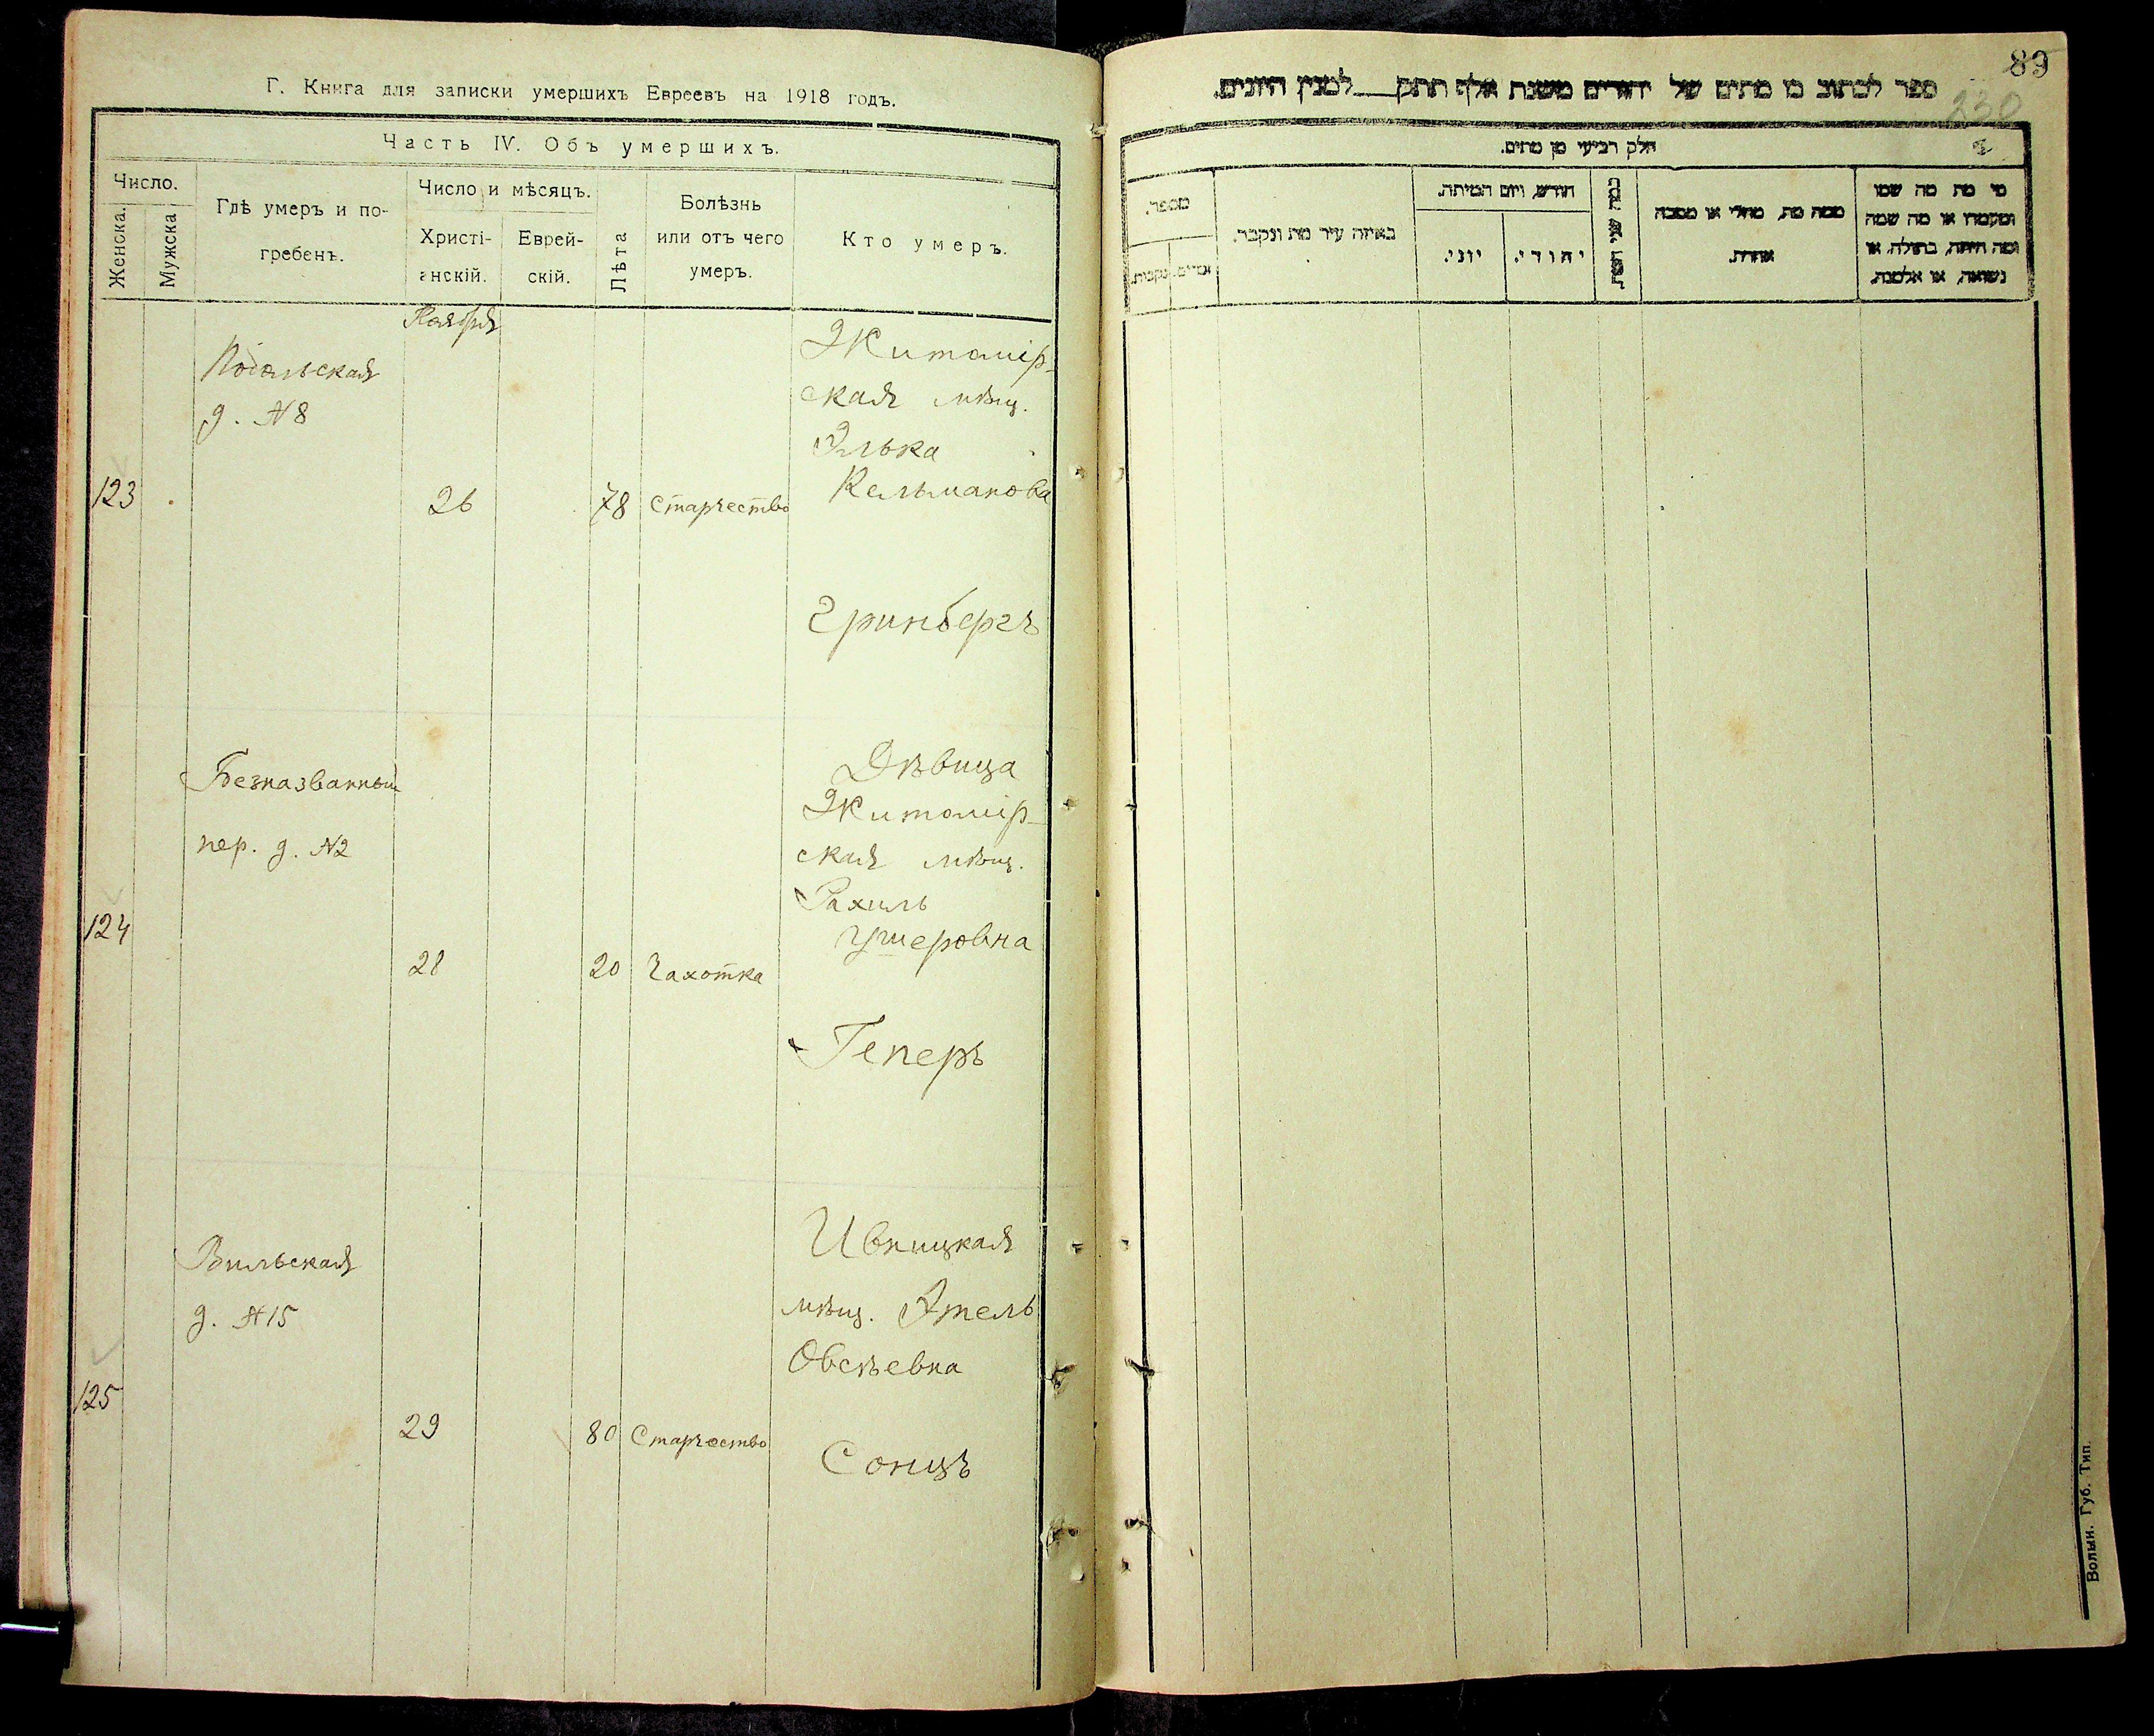 Г. Книга для записки умершихъ Евреевъ на 1918 годъ.
Часть IV. Объ умершихъ.
Число.
Женска.
Мужска
Гдѣ умеръ и по-
гребенъ.
Число и мѣсяцъ.
Христі-
анскій.
Еврей-
скій.
Лѣта
Болѣзнь
или отъ чего
умеръ.
Кто умеръ.
Ноября
123
Подольская
д. №8
26
78
Старчество
Житомір-
ская мѣщ.
Элька
Кельманова
Гринбергъ
124
Безназванный
пер. д. №2
28
20
Чахотка
Дѣвица
Житомір-
ская мѣщ.
Рахиль
Ушеровна
Геперъ
125
Вильская
д. №15
29
80
Старчество
Ивницкая
мѣщ. Этель
Овсѣевна
Сонцъ
89
230
ספר לכתוב בו מתים של יהודים משנת אלף תתק למנין היונים.
חלק רביעי מן מתים.
מספר.
זכרים.
נקבות.
באיזה עיר מת ונקבר.
חודש, ויום המיתה.
יוני.
יהודי.
ממה מת, מחלי או מסבה
אחרת.
מי מת מה שמו
ומעמדו או מה שמה
ומה היתה, בתולה, או
נשואה, או אלמנה.
Волын. Губ. Тип.